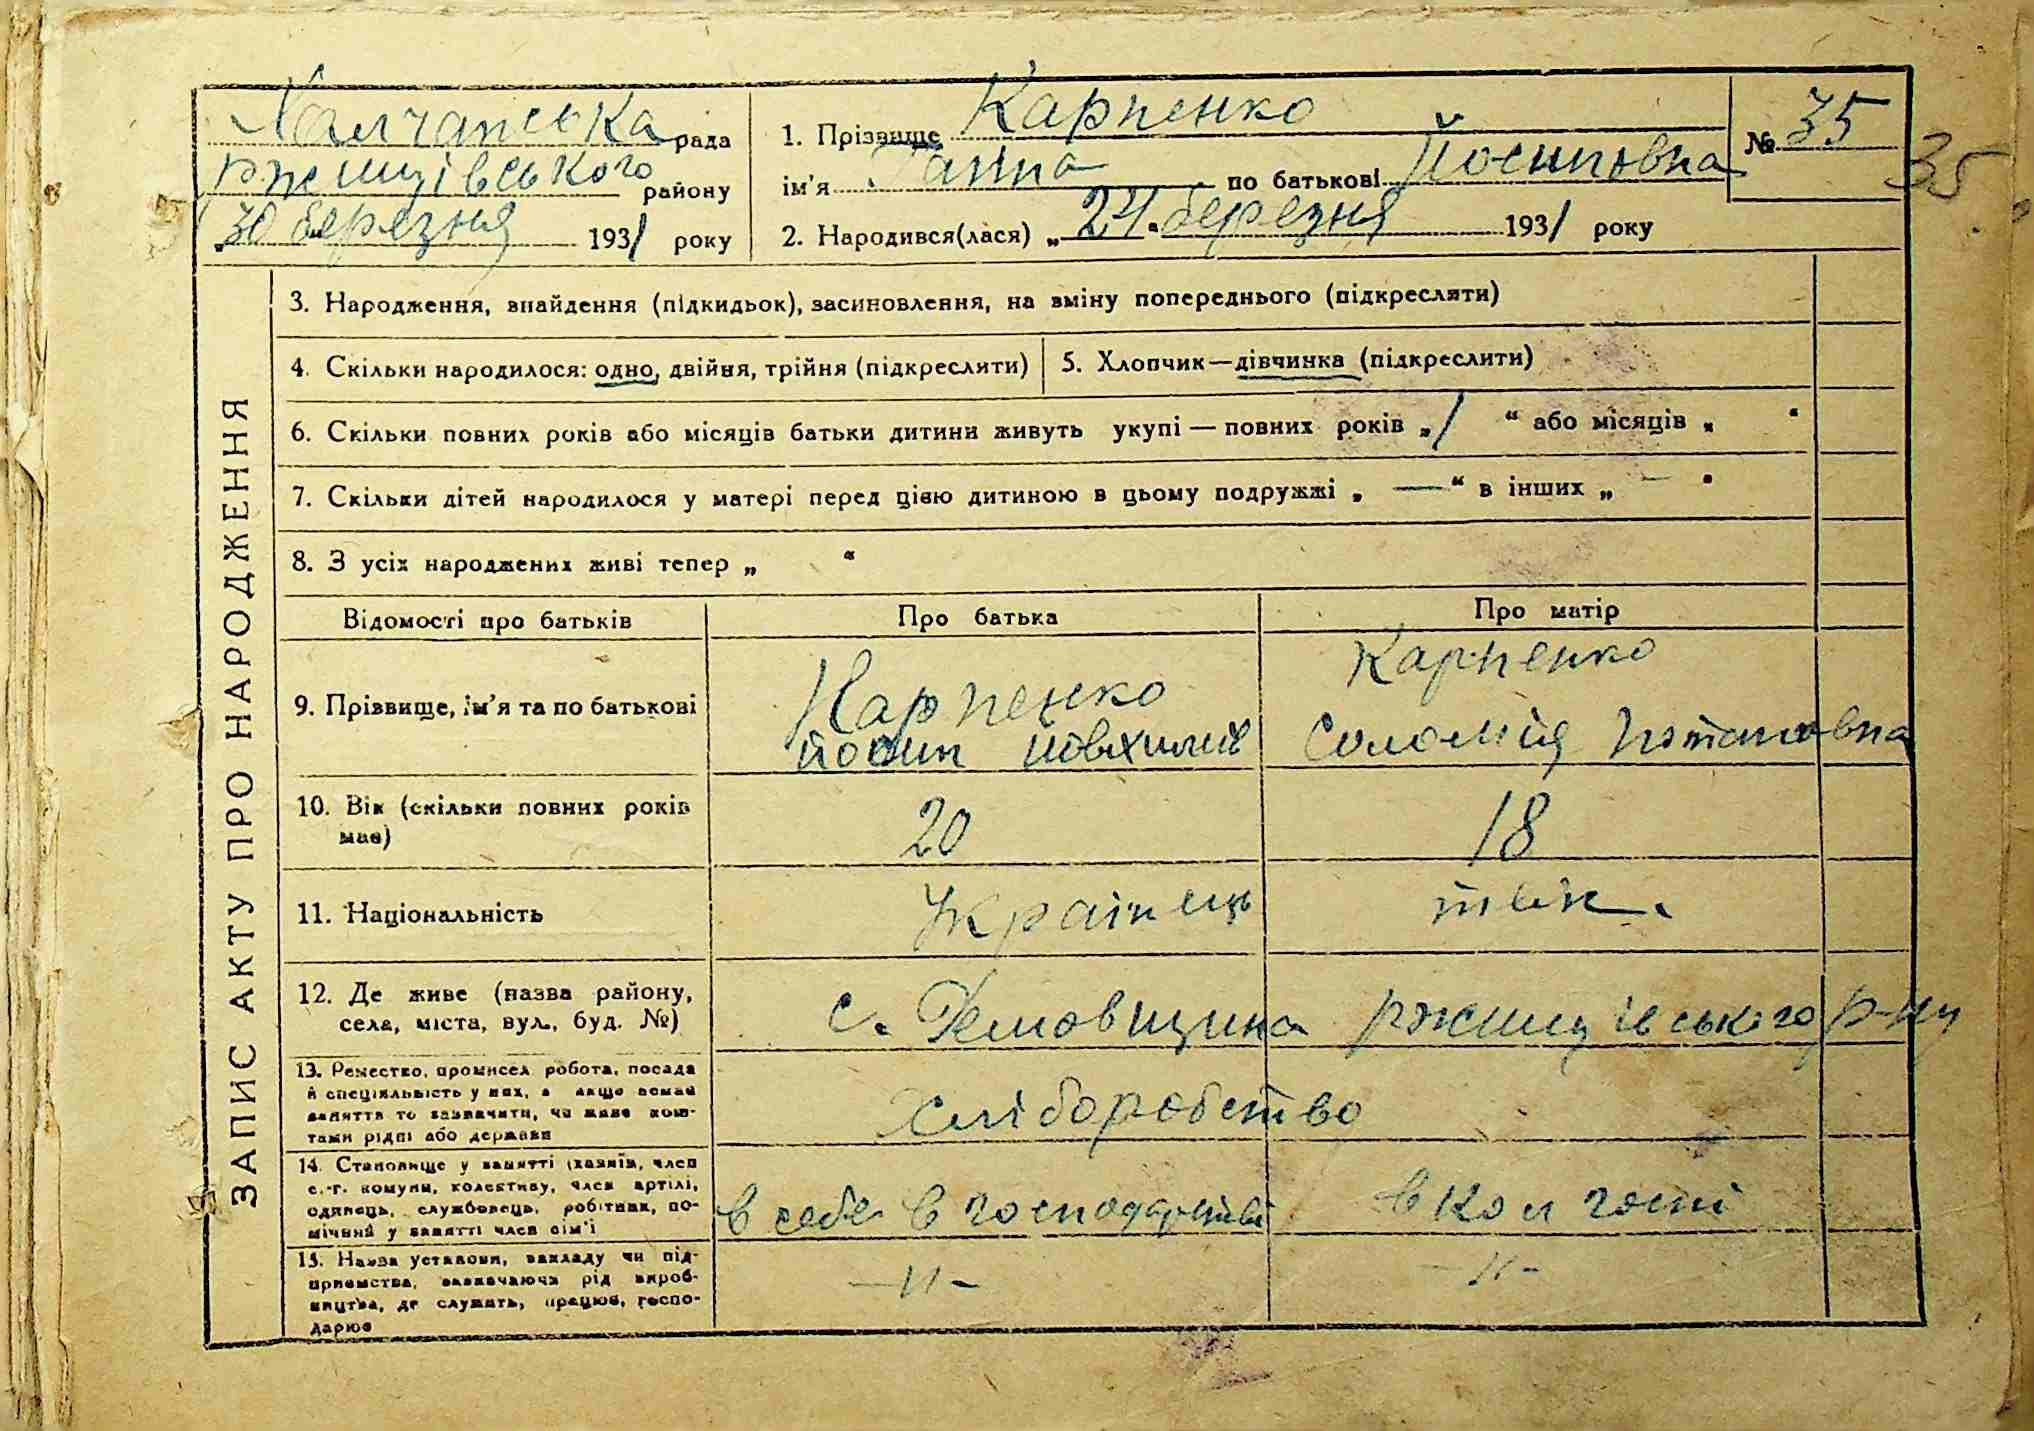 Халчанська рада
Ржищівського району
„30 березня 1931 року
1. Прізвище Карпенко
ім'я Ганна по батькові Йосиповна
2. Народився(лася) „24“ березня 1931 року
№ 35
35
ЗАПИС АКТУ ПРО НАРОДЖЕННЯ
3. Народження, знайдення (підкидьок), засиновлення, на зміну попереднього (підкреслити)
4. Скільки народилося: одно, двійня, трійня (підкреслити)
5. Хлопчик—дівчинка (підкреслити)
6. Скільки повних років або місяців батьки дитини живуть укупі — повних років „1 “ або місяців „ “
7. Скільки дітей народилося у матері перед цією дитиною в цьому подружжі „ — “ в інших „ — “
8. З усіх народжених живі тепер „ “
Відомості про батьків Про батька Про матір
9. Прізвище, ім'я та по батькові
Карпенко
Йосип
Карпенко
Соломія Потаповна
10. Вік (скільки повних років
має)
20 18
11. Національність Українець
12. Де живе (назва району,
села, міста, вул., буд. №)
с. Демовщина Ржищівського р-ну
13. Ремество, промисел, робота, посада
й спеціяльність у них, а якщо немає
заняття то зазначити, чи живе кош-
тами рідні або держави
хліборобство
14. Становище у занятті (хазяїн, член
с.-г. комуни, колективу, член артілі,
одинець, службовець, робітник, по-
мічний у занятті член сім'ї
в себе в господарстві в колгоспі
15. Назва установи, закладу чи під-
приємства, зазначаючи рід вироб-
ництва, де служить, працює, госпо-
дарює
—"— —"—